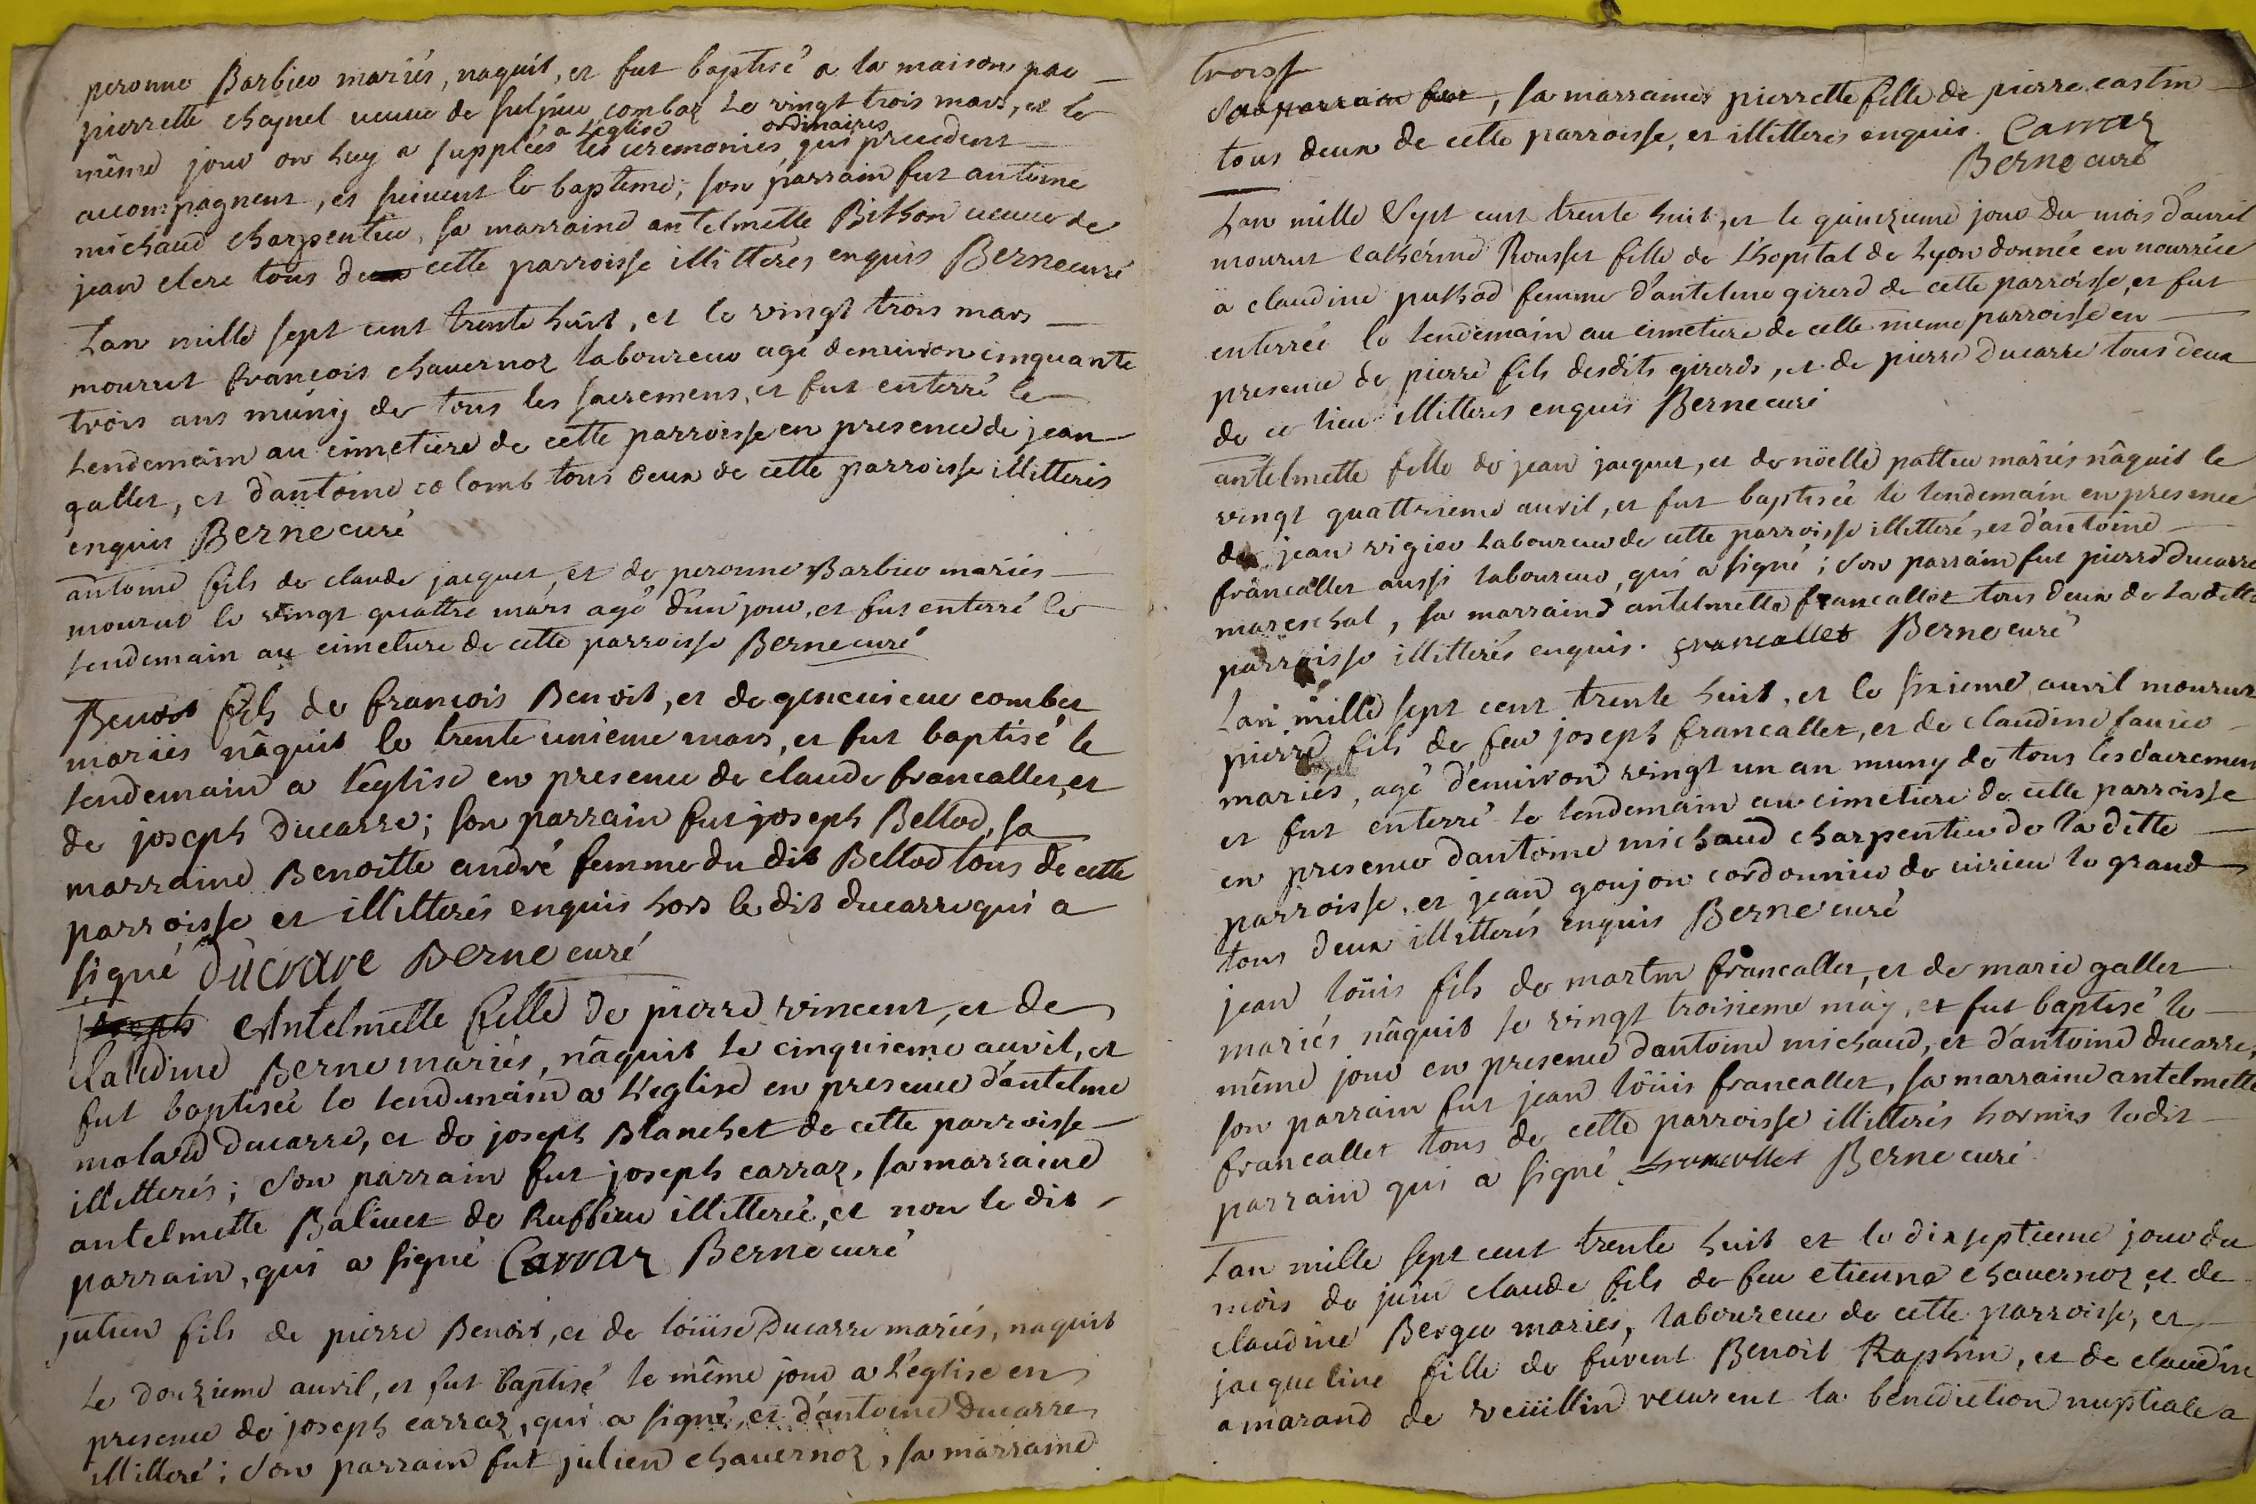 peronne Barbier mariés, naquit, et fut baptisé a la maison par
pierrette chaynel veuve de sulpice combaz le vingt trois mars, et le
même jour on luy a suppléés a l'église les ceremonies ordinaires qui precedent
accompagnent, et suivent le bapteme; son parrain fut antoine
michaud charpentier, sa marraine antelmette Bithon veuve de
jean clerc tous de cette parroisse illitterés enquis Berne curé
Lan mille sept cent trente huit, et le vingt trois mars
mourut francois chavernoz laboureur agé denviron cinquante
trois ans muny de tous les sacremens, et fut enterré le
Lendemain au cimetiere de cette parroisse en presence de jean
gallet, et dantoine colomb tous deux de cette parroisse illitteris
enquis Berne curé
antoine fils de claude jacquet, et de peronne Barbier mariés
mourut le vingt quattre mars agé d'un jour, et fut enterré le
lendemain au cimetiere de cette parroisse Berne curé
Benoit fils de francois Benoit, et de genevieve combet
mariés nâquit le trente unieme mars, et fut baptisé le
lendemain a l'église en presence de claude francallet, et
de joseph Ducarre; son parrain fut joseph Bellod, sa
marraine Benoitte andré femme du dit Bellod tous de cette
parroisse et illitterés enquis hors le dit ducarre qui a
signé Ducrare Berne curé
joseph Antelmette fille de pierre vincent, et de
claudine Berne mariés, nâquit le cinquieme avril, et
fut baptisée le lendemain a l'eglise en presence d'antelme
molard Ducarre, et de joseph Blanchet de cette parroisse
illitterés; Son parrain fut joseph carraz, sa marraine
antelmette Balivet de Ruffieu illitterée, et non le dit
parrain, qui a signé Carraz Berne curé
julien fils de pierre Benoit, et de loüise Ducarre mariés, naquit
le douzieme avril, et fut baptisé le même jour a l'église en
presence de joseph carraz, qui a signé, et d'antoine Ducarre
illitteré; Son parrain fut julien chavernoz, sa marraine
trois
Son parrain fut, sa marraine pierrette fille de pierre castin
tous deux de cette parroisse, et illitteres enquis. Carraz
Berne curé
Lan mille sept cent trente huit, et le quinzieme jour Du mois d'avril
mourut catherine Rousset fille de l'hopital de Lyon donnée en nourrice
a claudine puthod femme d'antelme girerd de cette parroisse, et fut
enterrée le lendemain au cimetiere de cette meme parroisse en
presence de pierre fils desdits girerds, et de pierre Ducarre tous deux
de ce lieu illitterés enquis Berne curé
antelmette fille de jean jacquet, et de nöelle pattier mariés nâquit le
vingt quattrieme avril, et fut baptisée le lendemain en presence
de jean vigier Laboureur de cette parroisse illitteré, et d'antoine
francallet aussi laboureur, qui a signé; Son parrain fut pierre Ducarre
mareschal, sa marraine antelmette francallet tous deux de la dette
parroisse illitterés enquis. francallet Berne curé
Lan mille sept cent trente huit, et le sixieme avril mourut
pierre fils de feu joseph francallet, et de claudine favier
mariés, agé d'environ vingt un an muny de tous les Sacremens
et fut enterré le lendemain au cimetiere de cette parroisse
en presence dantoine michaud charpentier de la ditte
parroisse, et jean goujon cordonnier de virieu le grand
tous deux illitterés enquis Berne curé
jean loüis fils de martin francallet, et de marie gallet
mariés nâquit le vingt troisieme may, et fut baptisé le
même jour en presence dantoine michaud, et d'antoine ducarre,
son parrain fut jean loüis francallet, sa marraine antelmette
francallet tous de cette parroisse illitterés hormis ledit
parrain qui a signé francallet Berne curé
Lan mille sept cent trente huit et le dix septieme jour du
mois de juin claude fils de feu etienne chavernoz, et de
claudine Berger mariés, laboureur de cette parroisse, et
jacqueline fille de furent Benoit Raphin, et de claudine
amarand de veüillin recurent la benediction nuptiale a